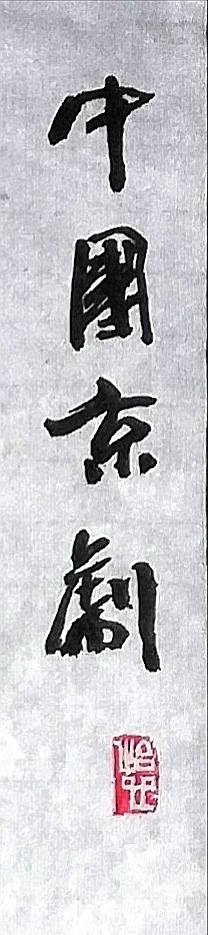 中國京劇